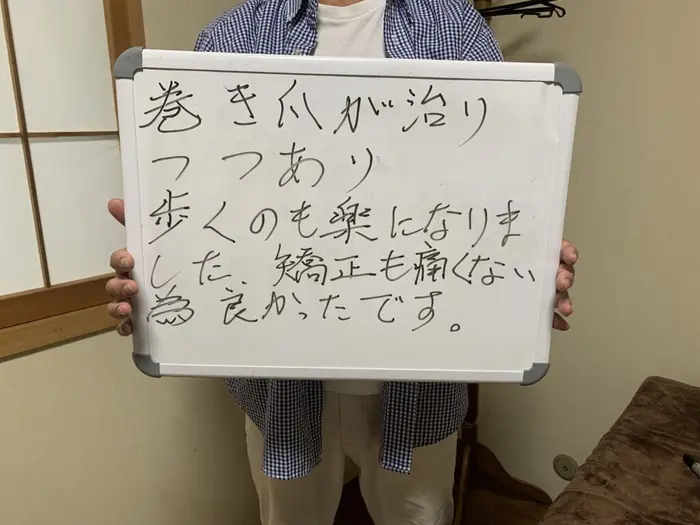 巻き爪が治り
つつあり
歩くのも楽になりま
した、矯正も痛くない
為良かったです。